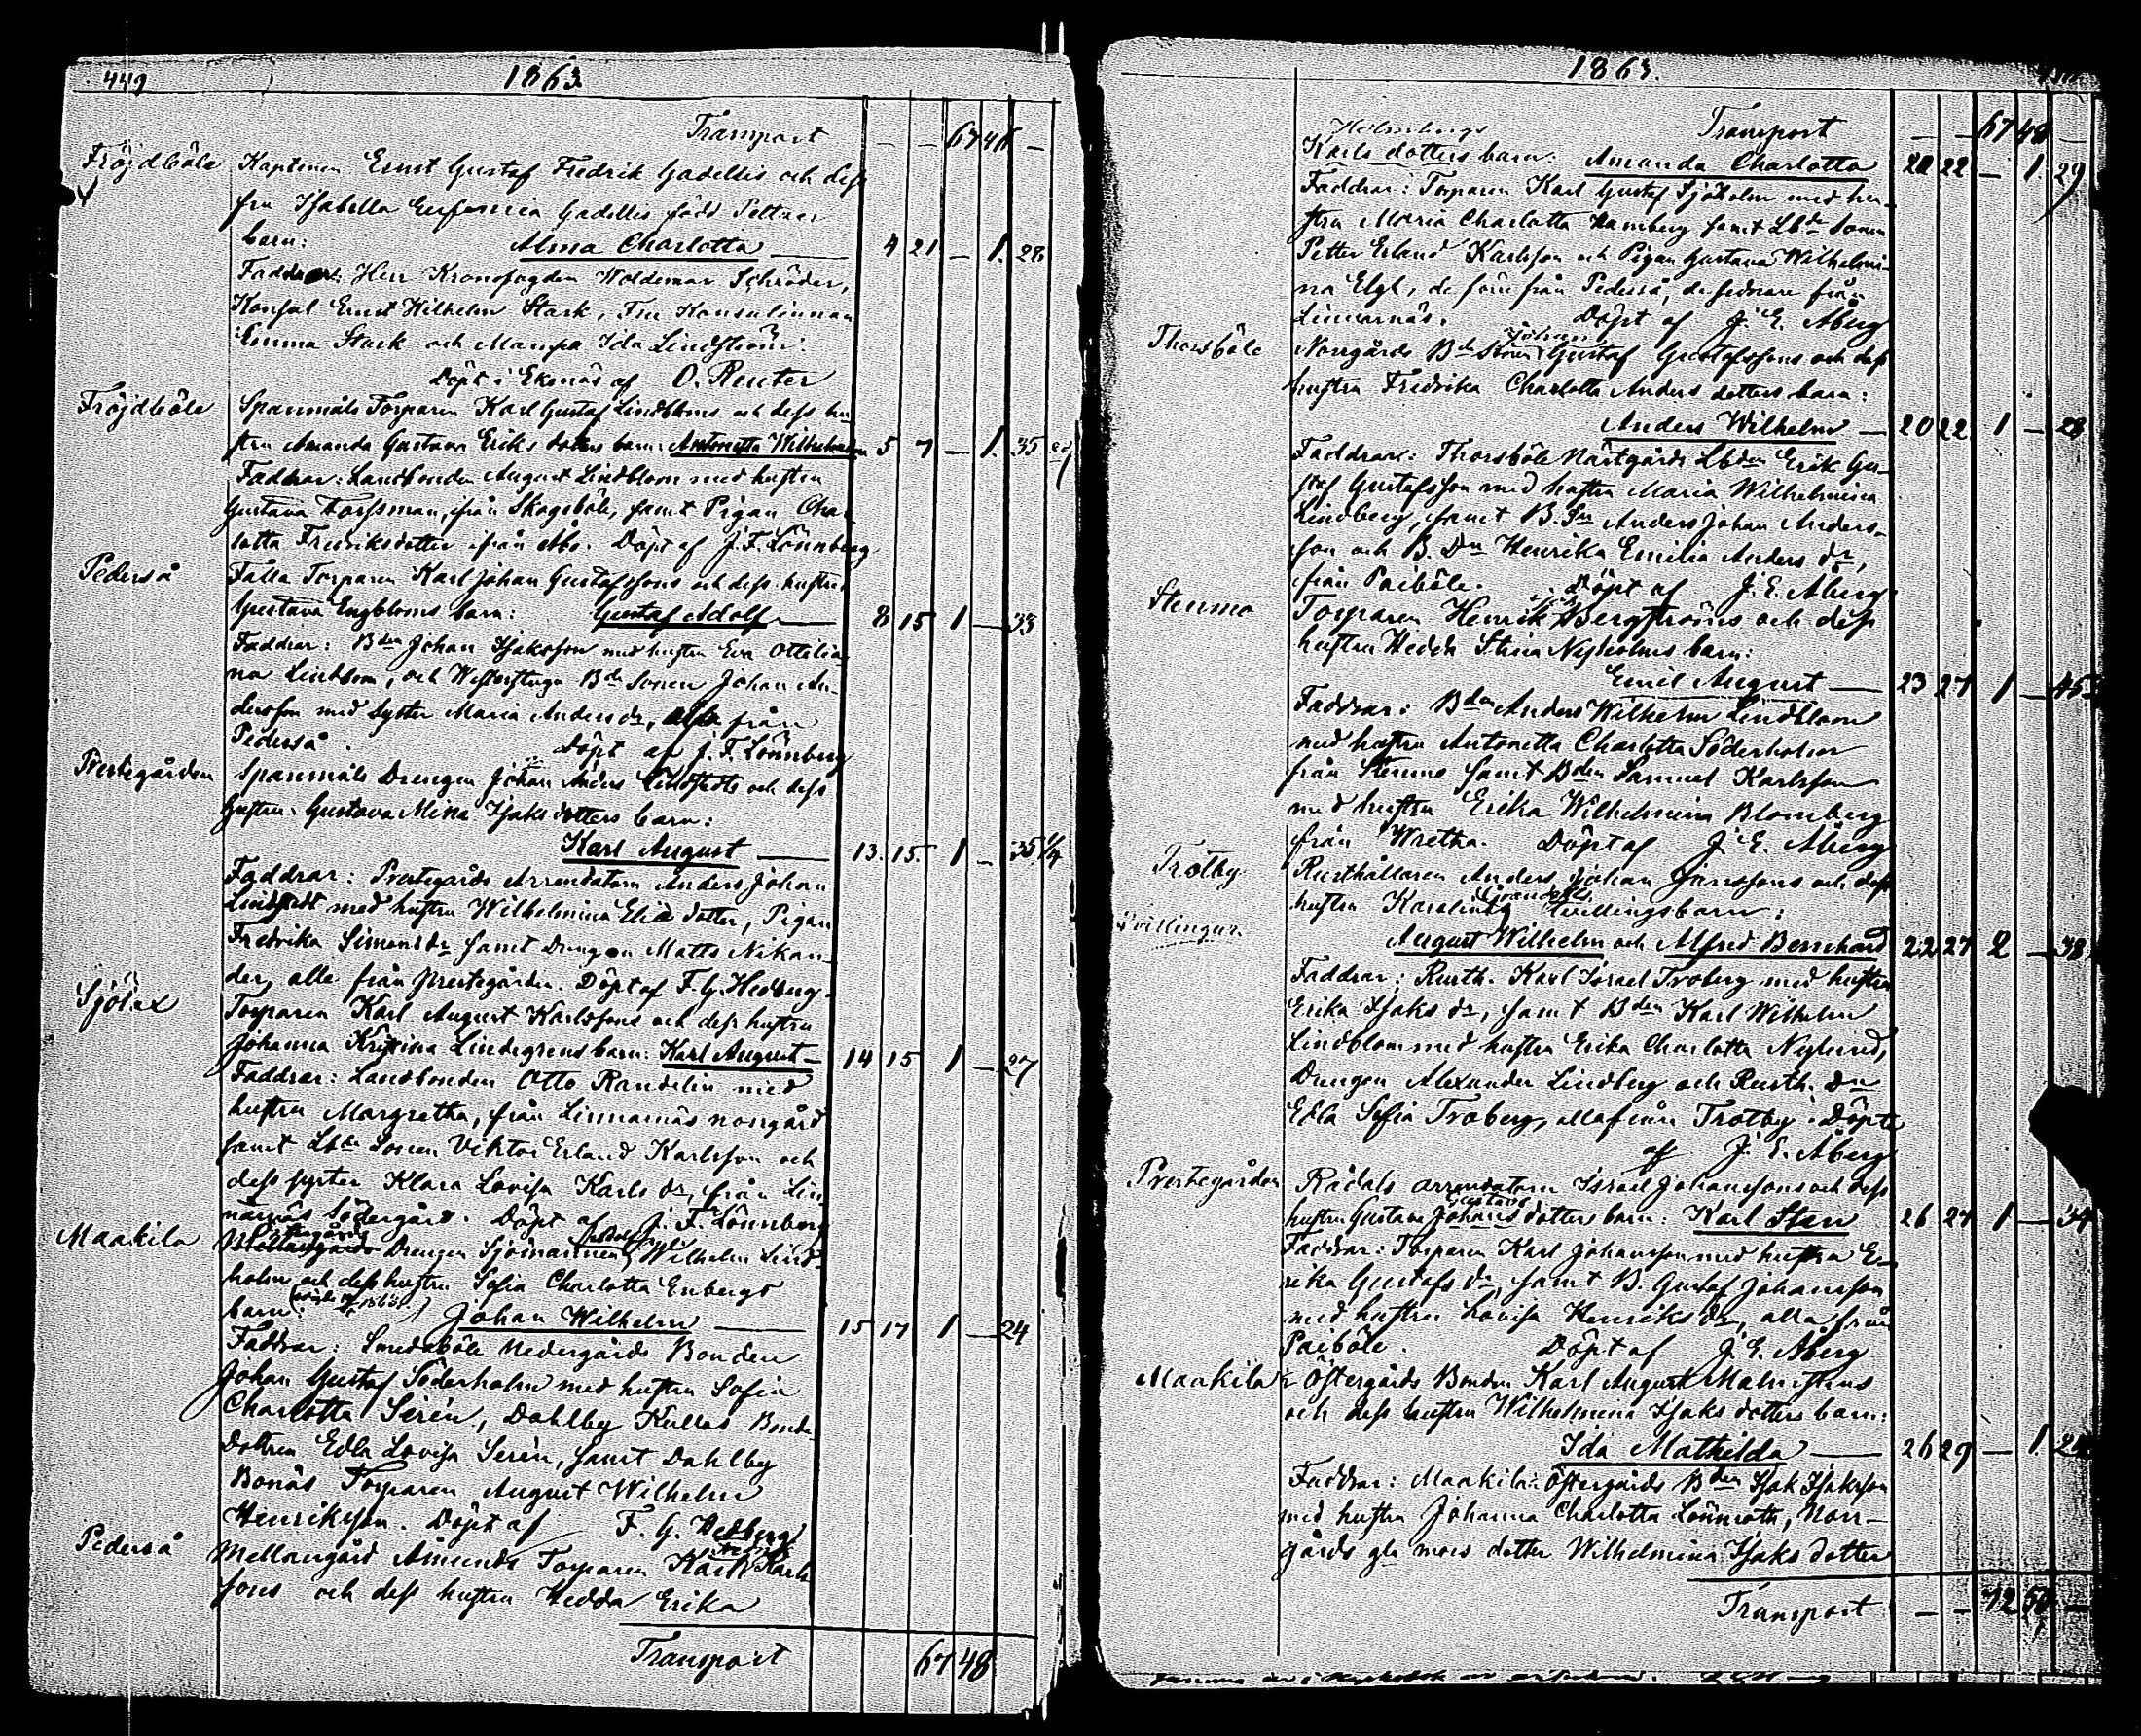 449
1863
Transport — — 67 46 —
Fröjdböle Kaptenen Ernst Gustaf Fredrik Gadellis och dess
fru Isabella Eufemia Gadellis född Peltzer
barn: Alma Charlotta — 4 21 — 1. 28
Faddrar: Herr Kronofogden Woldemar Schröder,
Konsul Ernst Wilhelm Stark, Fru Konsulinnan
Emma Stark och Ida Lindström.
Döpt i Ekenäs af O. Reuter
Fröjdböle Spanmåls Torparen Karl Gustaf Lindbloms och dess hu
stru Amanda Gustava Eriks dotters barn: Antonetta Wilhelmina 5 7 — 1. 35
Faddrar: Landbonden August Lindblom med hustru
Gustava Forssman, från Skogsböle, samt Pigan Char
lotta Fredriksdotter från Åbo. Döpt af J. F. Lönnberg
Pederså Fälla Torparen Karl Johan Gustafssons och dess hustrus
Gustava Engbloms barn: Gustaf Adolf — 8 15 1 — 33
Faddrar: Bden Johan Isaksson med hustru Eva Ottilia
na Lindblom, och Westerstuga Bde sonen Johan An-
dersson med syster Maria Anders dr, alla från
Pederså. Döpt af J. F. Lönnberg
Prestegården Spanmåls Drengen Johan Anders Lindstedts och dess
hustru Gustava Mina Isaks dotters barn:
Karl August — 13. 15. 1 — 35 1/4
Faddrar: Prestegårds Arrendatorn Anders Johan
Lindstedt med hustru Wilhelmina Elias dotter, Pigan
Fredrika Simons dr samt Drengen Matts Nikan-
der, alle från Prestegården. Döpt af F. G. Hedberg.
Sjölax Torparen Karl August Karlssons och dess hustru
Johanna Kristina Lindegrens barn: Karl August — 14 15 1 — 27
Faddrar: Landbonden Otto Randelin med
hustru Margretha, från Linnarnäs norrgård
samt Lbde Sonen Viktor Erland Karlsson och
dess syster Klara Lovisa Karls dr, från Lin
närnäs Södergård. Döpt af J. F. Lönnberg
Maakila Drengen Sjömannen Wilhelm Lind-
holm och dess hustru Sofia Charlotta Enbergs
barn: Johan Wilhelm — 15 17 1 — 24
Faddrar: Smedsböle Nedergårds Bonden
Johan Gustaf Söderholm med hustru Sofia
Charlotta Serén, Dahlby Kullas Bonde
Dottren Edla Lovisa Serén, samt Dahlby
Bonäs Torparen August Wilhelm
Henriksson. Döpt af F. G. Hedberg
Pederså Mellangård Åmunds Torparen Karl Karls
sons och dess hustru Hedda Erika
Transport 67 48
1863.
Transport — — 67 48 —
Holmbergs
Karls dotters barn: Amanda Charlotta 20 22 — 1. 29
Faddrar: Torparen Karl Gustaf Sjöholm med hu-
stru Maria Charlotta Hamberg samt Lbde Sonen
Petter Erland Karlsson och Pigan Gustava Wilhelmi-
na Elgh, de förre från Pederså, de sednare från
Linnarnäs. Döpt af J. E. Åberg
Johan
Thorsböle Norrgårds Bde Sonen Gustaf Gustafssons och dess
hustru Fredrika Charlotta Anders dotters barn:
Anders Wilhelm — 20 22 1 — 28
Faddrar: Thorsböle Nättgårds Lbden Erik Gu-
staf Gustafsson med hustru Maria Wilhelmina
Lindberg, samt B. Sn Anders Johan Anders-
son och B. Dn Henrika Emilia Anders dr,
från Paiböle. Döpt af J. E. Åberg
Stenmo Torparen Henrik Bergströms och dess
hustru Hedda Stina Nyholms barn:
Emil August — 23 27 1 — 45
Faddrar: Bden Anders Wilhelm Lindblom
med hustru Antonetta Charlotta Söderholm
från Stenmo samt Bden Samuel Karlsson
med hustru Erika Wilhelmina Blomberg
från Wretha. Döpt af J. E. Åberg
Trotby Rusthållaren Anders Johan Janssons och dess
hustru Karolina Tvillingsbarn:
Tvillingar. August Wilhelm och Alfred Bernhard 22 27 2 — 38
Faddrar: Rusth. Karl Israel Troberg med hustru
Erika Isaks dr, samt Bden Karl Wilhelm
Lindblom med hustru Erika Charlotta Nylund,
Drengen Alexander Lindberg och Rusth. Dn
Edla Sofia Troberg, alla från Trotby. Döpte
af J. E. Åberg
Prestegården Rådals arrendatorn Israel Johanssons och dess
hustru Gustava Johans dotters barn: Karl Sten 26 27 1 — 34
Faddrar: Torparen Karl Johansson med hustru E-
rika Gustafs dr samt B. Gustaf Johansson
med hustru Lovisa Henriks dr, alla från
Paiböle. Döpt af J. E. Åberg
Maakila Östergårds Bonden Karl August Malmstens
och dess hustru Wilhelmina Isaks dotters barn:
Ida Mathilda — 26 29 — 1
Faddrar: Maakila Östergårds Bden Isak Isaksson
med hustru Johanna Charlotta Lönnroth, Norr-
gårds gla mors dotter Wilhelmina Isaks dotter
Transport — — 72 50 —